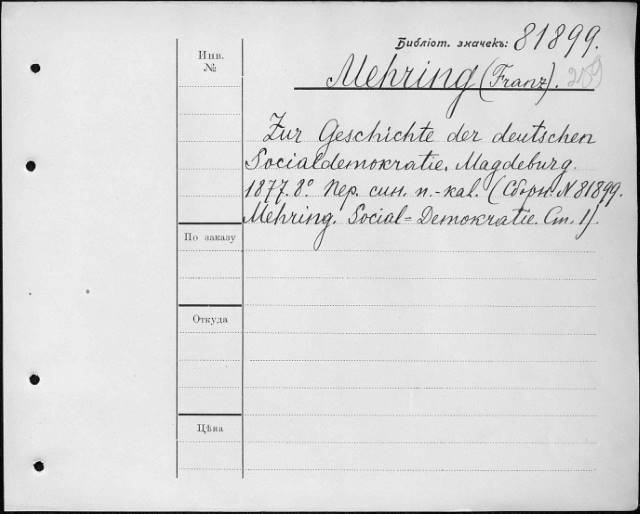 Библіот. значекъ: 81899.
Инв.
№
Mehring (Franz). 209
Zur Geschichte der deutschen
Socialdemokratie. Magdeburg.
1877. 8º. Пер. син. п.-кал. (Сборн. N 81899.
Mehring. Social=Demokratie. Ст. 1).
По заказу
Откуда
Цѣна